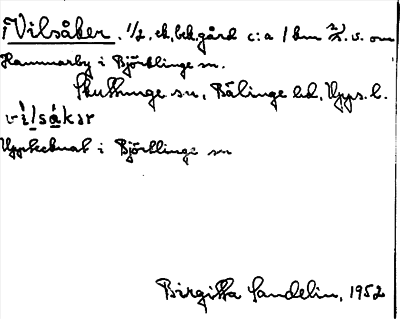 Vilsåker, 1/2, ek, bek. gård c:a 1 km n.v. om
Hammarby i Björklinge sn.
Skuttunge sn, Bälinge hd, Upps. l.
vilsåkər
Upptecknat i Björklinge sn
Birgitta Sandelin, 1952